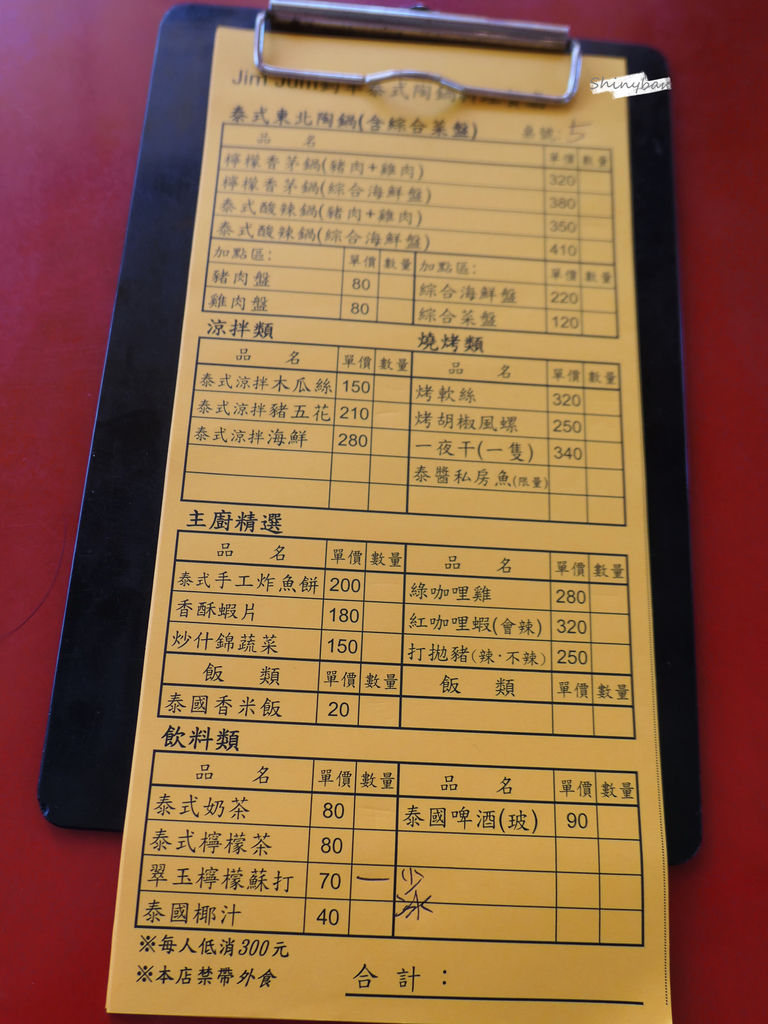 Shinyban
Jim Jum 泰式陶鍋
泰式東北陶鍋(含綜合菜盤) 桌號: 5
品 名 單價 數量
檸檬香茅鍋(豬肉+雞肉) 320
檸檬香茅鍋(綜合海鮮盤) 380
泰式酸辣鍋(豬肉+雞肉) 350
泰式酸辣鍋(綜合海鮮盤) 410
加點區: 單價 數量 加點區: 單價 數量
豬肉盤 80 綜合海鮮盤 220
雞肉盤 80 綜合菜盤 120
涼拌類 燒烤類
品 名 單價 數量 品 名 單價 數量
泰式涼拌木瓜絲 150 烤軟絲 320
泰式涼拌豬五花 210 烤胡椒風螺 250
泰式涼拌海鮮 280 一夜干(一隻) 340
泰醬私房魚(限量)
主廚精選
品 名 單價 數量 品 名 單價 數量
泰式手工炸魚餅 200 綠咖哩雞 280
香酥蝦片 180 紅咖哩蝦(會辣) 320
炒什錦蔬菜 150 打拋豬(辣·不辣) 250
飯 類 單價 數量 飯 類 單價 數量
泰國香米飯 20
飲料類
品 名 單價 數量 品 名 單價 數量
泰式奶茶 80 泰國啤酒(玻) 90
泰式檸檬茶 80
翠玉檸檬蘇打 70 一 少
泰國椰汁 40 冰
※每人低消300元
※本店禁帶外食 合計: